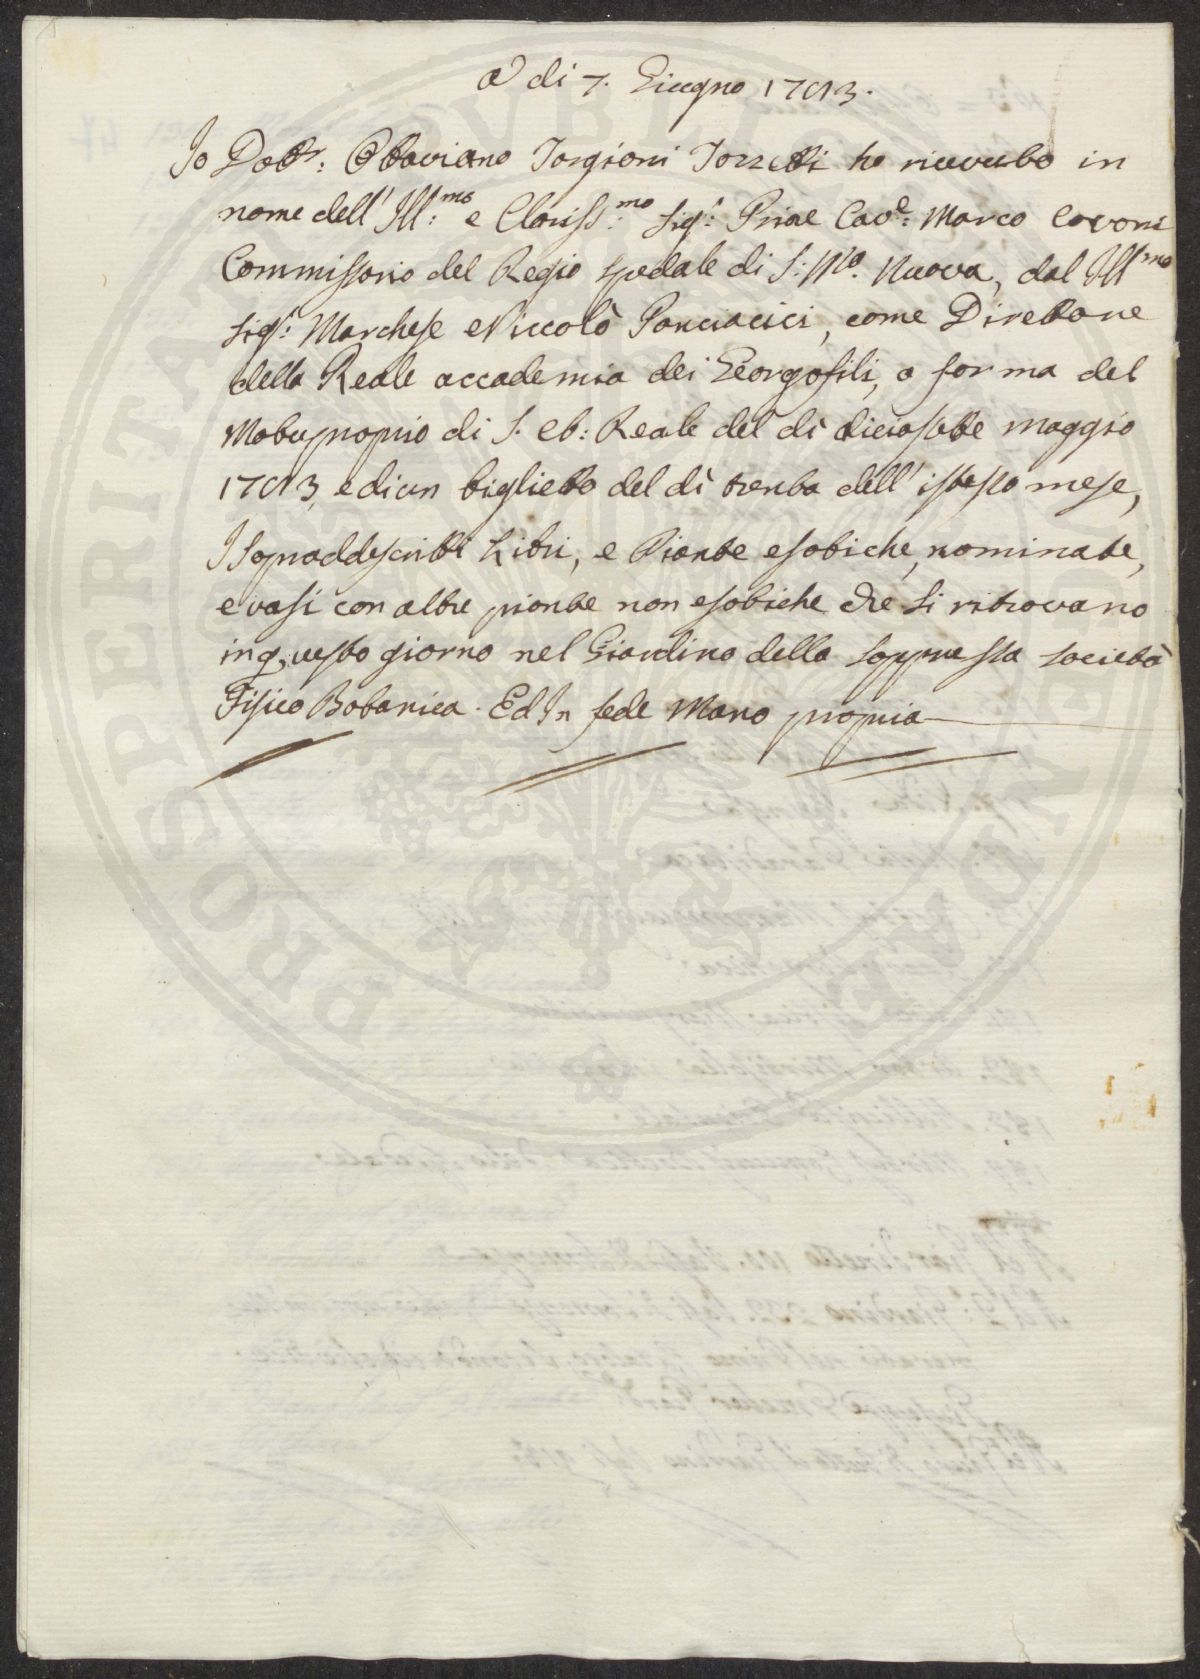 A dì 7. Giugno 1783.
Io Dott.r: Ottaviano Targioni Tozzetti ho ricevuto in
nome dell' Ill:mo e Clariss:mo Sig.r: Priore Cav.e: Marco Covoni
Commissario del Regio Spedale di S: M.a Nuova, dal Ill.mo
Sig.r: Marchese Niccolò Panciatici, come Direttore
della Reale accademia dei Georgofili, a forma del
Motuproprio di S. A: Reale del dì diciasette maggio
1783, e di un biglietto del dì trenta dell' istesso mese,
I sopraddescritti Libri, e Piante esotiche, nominate,
e vasi con altre piante non esotiche che si ritrovano
in questo giorno nel Giardino della soppressa società
Fisico Botanica. Ed In fede Mano propria
PROSPERITATI PUBLICAE AUGENDAE